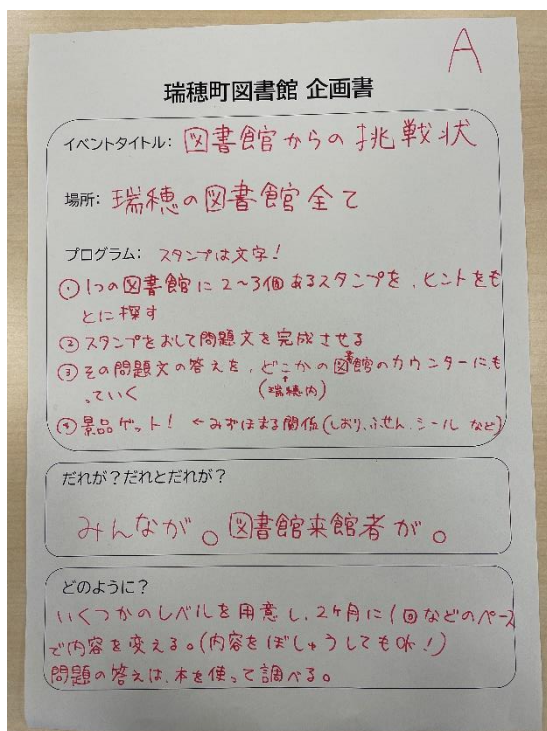 A
瑞穂町図書館 企画書
イベントタイトル: 図書館からの挑戦状
場所: 瑞穂の図書館全て
プログラム: スタンプは文字!
① 1つの図書館に2〜3個あるスタンプを、ヒントをも
とに探す
② スタンプをおして問題文を完成させる
③ その問題文の答えを、どこかの図書館のカウンターにも
っていく (瑞穂内)
④ 景品ゲット! ←みずほまる関係(しおり、ふせん、シール など)
だれが?だれとだれが?
みんなが。図書館来館者が。
どのように?
いくつかのレベルを用意し、2ヶ月に1回などのペース
で内容を変える。(内容をぼしゅうしてもOk!)
問題の答えは、本を使って調べる。